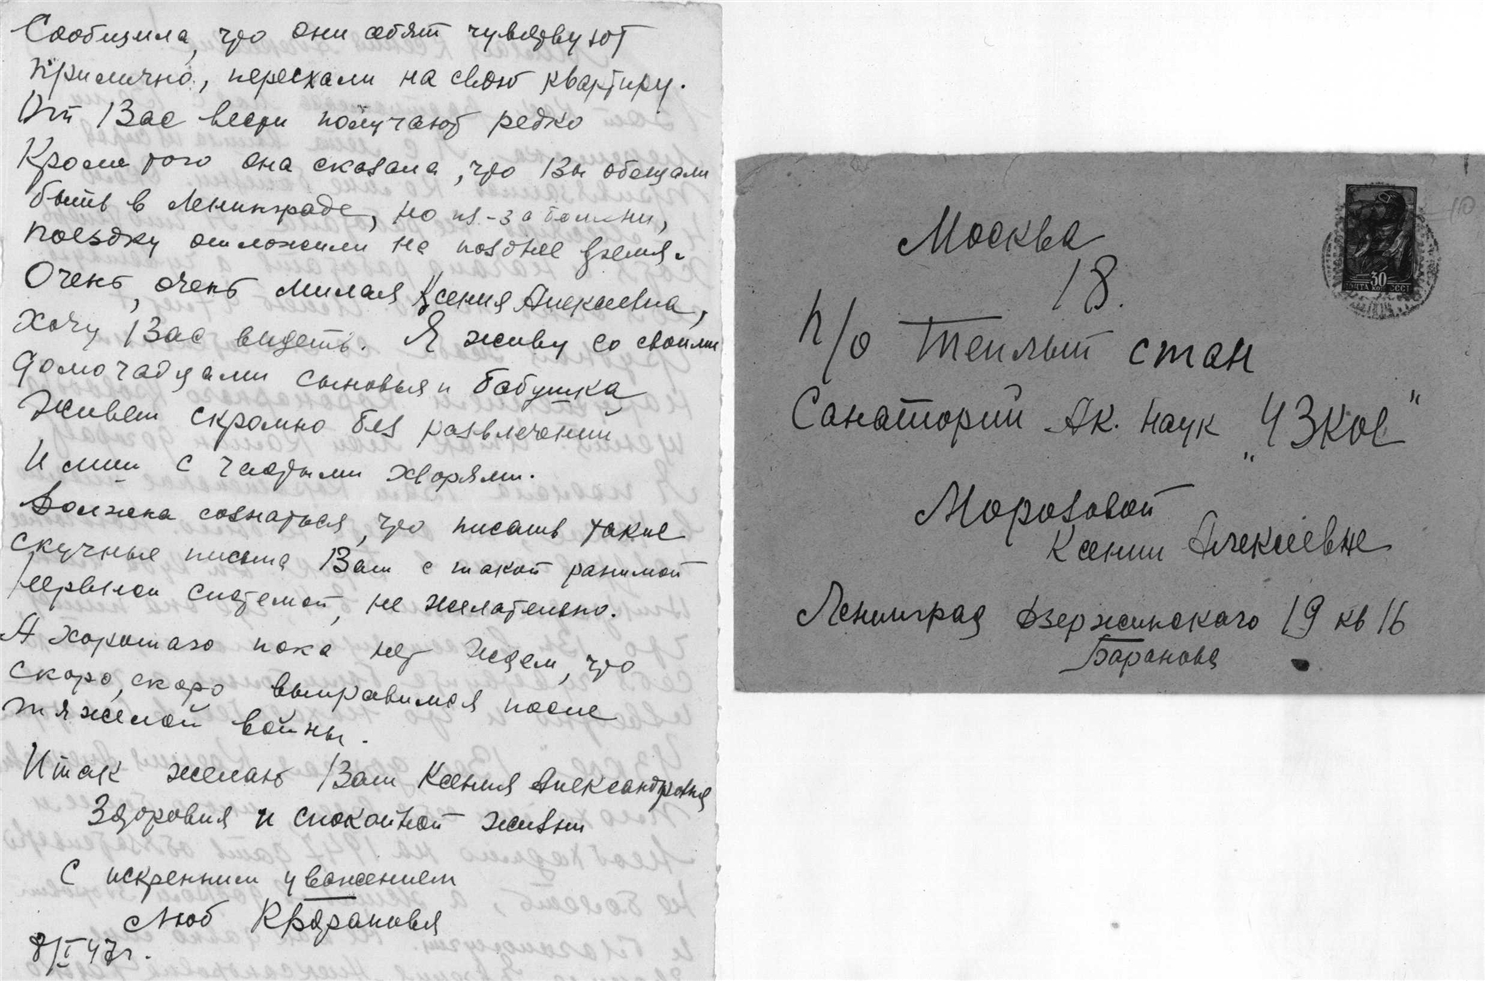 Сообщила, что они себя чувствуют
прилично, переехали на свою квартиру.
От Вас вести получают редко
Кроме того она сказала, что Вы обещали
быть в Ленинграде, но из-за болезни,
поездку отложили на позднее время.
Очень, очень милая Ксения Алексеевна,
хочу Вас видеть. Я живу со своими
домочадцами сыновья и бабушка
живем скромно без развлечений
И мы с частыми хворями.
Должна сознаться, что писать такие
скучные письма Вам с такой ранимой
нервной системой, не желательно.
А хорошаго пока нет ждем, что
скоро, скоро выправимся после
тяжелой войны.
Итак желаю Вам Ксения Александровна
Здоровия и спокойной жизни
С искренним уважением
Люб
8/I 47 г.
Москва
18.
п/о Теплый стан
Санаторий Ак. Наук „Узкое"
Морозовой
Ксении Алексеевне
Ленинград Дзержинского 19 кв 16
Баранова
30
ПОЧТА КОП СССР